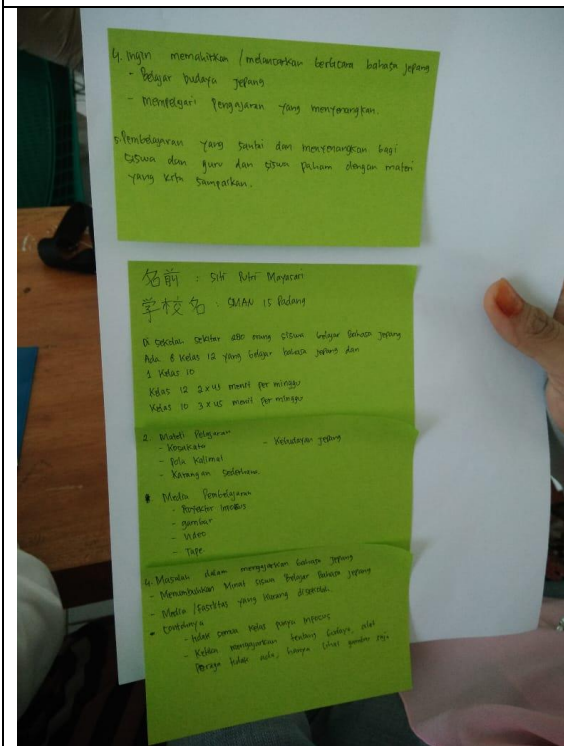 4. Ingin memahirkan / melancarkan berbicara bahasa jepang
- Belajar budaya jepang
- Mempelajari pengajaran yang menyenangkan.
5. Pembelajaran yang santai dan menyenangkan bagi
siswa dan guru dan siswa paham dengan materi
yang kita sampaikan.
名前 : Siti Putri Mayasari
学校名 : SMAN 15 Padang
Di sekolah sekitar 280 orang siswa belajar Bahasa Jepang
Ada 8 Kelas 12 yang belajar bahasa jepang dan
1 Kelas 10
Kelas 12 2 x 45 menit per minggu
Kelas 10 3 x 45 menit per minggu
2. Materi Pelajaran
- Kosakata - Kebudayaan jepang
- Pola Kalimat
- Karangan sederhana.
Media Pembelajaran
- Proyektor Infokus
- gambar
- Video
- Tape
4. Masalah dalam mengajarkan bahasa jepang
- Menumbuhkan Minat siswa Belajar Bahasa jepang
- Media / fasilitas yang kurang disekolah.
Contohnya
- tidak semua kelas punya infocus
- Ketika mengajarkan tentang budaya, alat
peraga tidak ada, hanya lihat gambar saja